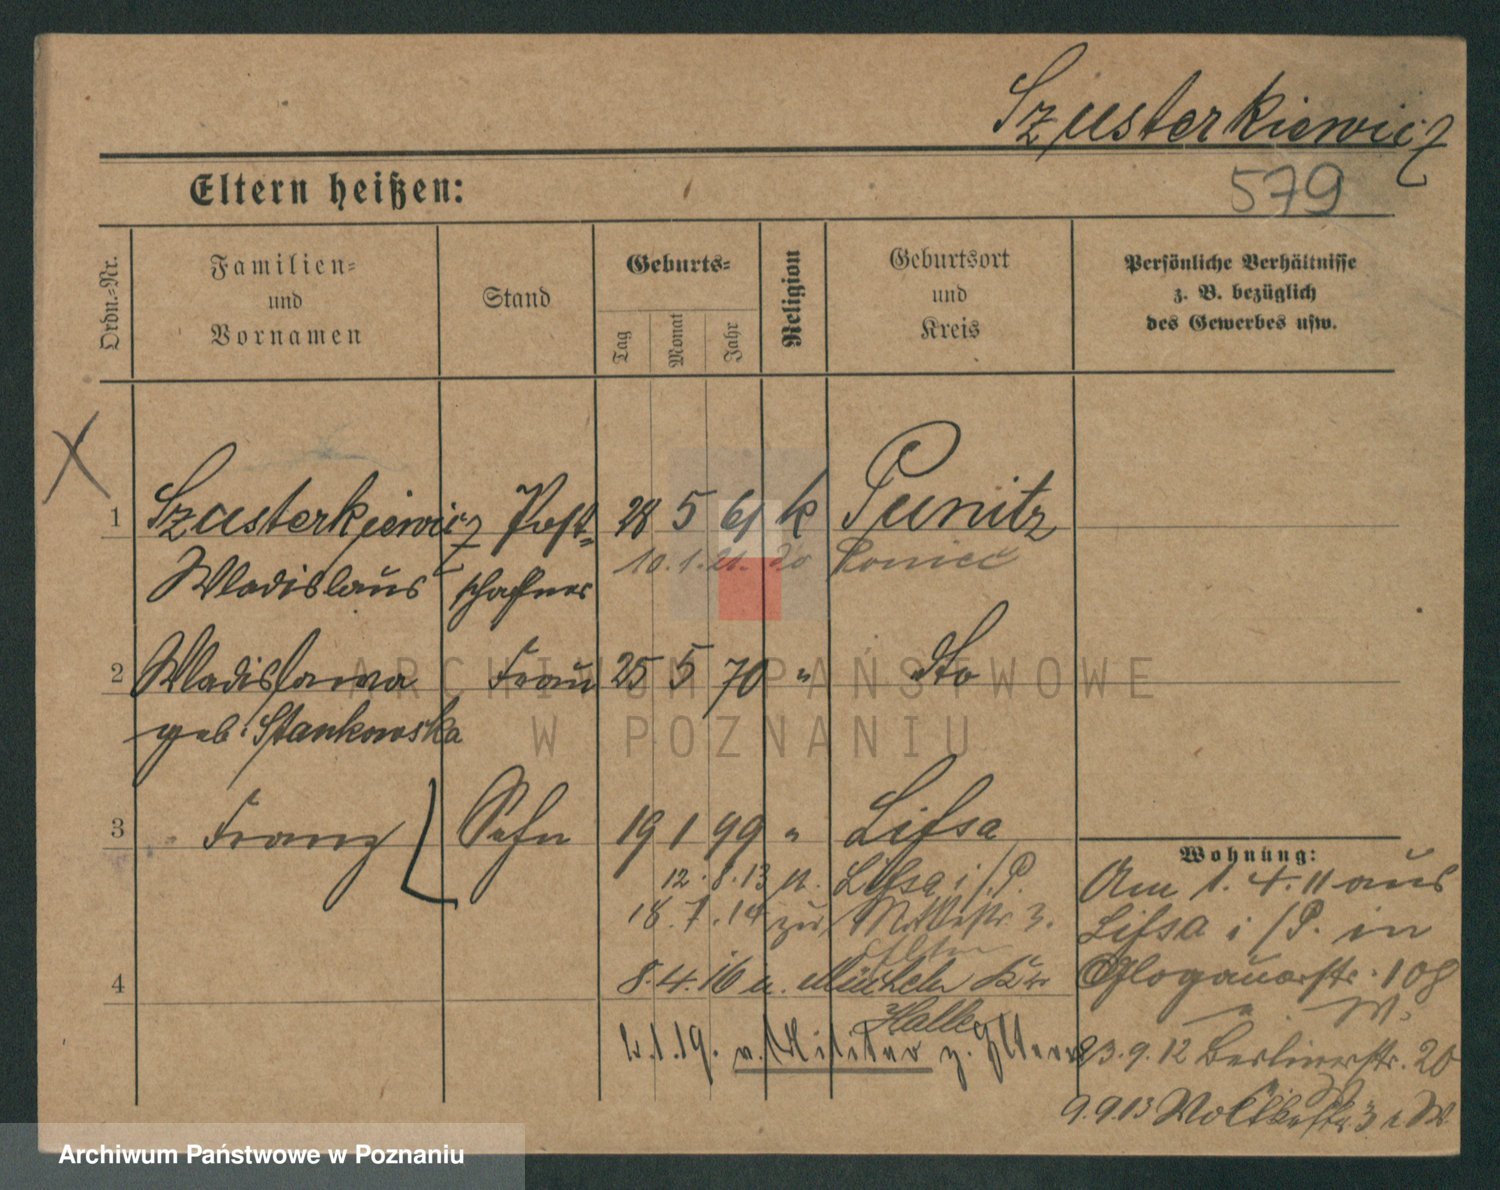 Szusterkiewicz
Eltern heißen:
579
Ordn.-Nr.
Familien-
und
Vornamen
Stand
Geburts-
Tag
Monat
Jahr
Religion
Geburtsort
und
Kreis
Persönliche Verhältnisse
z. B. bezüglich
des Gewerbes usw.
X
1 Szusterkiewicz Post- 28 5 61 k Punitz
10.1.21. do Poniec
Wladislaus schaffner
2 Wladislawa Frau 25 5 70 " dto
geb. Stankowska
3 Franz Sohn 19 1 99 " Lissa
Wohnung:
12.8.13 n. Lissa i/P.
Am 1.4.11 aus
18.7.14 zur 3.
Lissa i/P. in
Eltern
4 8.4.16 n. Mücheln Kr.
Glogauerstr. 108
Halle
1.19. v. Militär z. Eltern
23.9.12 Berlinerstr. 20
9.9.13 3 W
ARCHIWUM PAŃSTWOWE
W POZNANIU
Archiwum Państwowe w Poznaniu